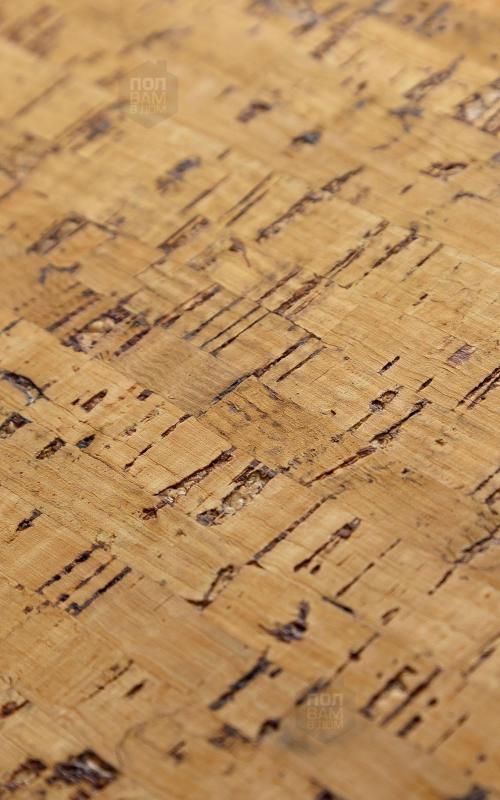 ПОЛ
ВАМ
В ДОМ
ПОЛ
ВАМ
В ДОМ